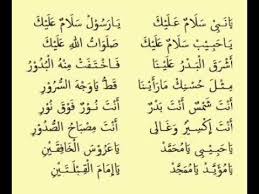 يَانَبِى سَلَامٌ عَلَيْكَ يَارَسُوْلْ سَلَامٌ عَلَيْكَ
يَاحَبِيْبْ سَلَامٌ عَلَيْكَ صَلَوَاتُ اللهِ عَلَيْكَ
أَشْرَقَ الْبَدْرُ عَلَيْنَا فَاخْتَفَتْ مِنْهُ الْبُدُوْرُ
مِثْلَ حُسْنِكْ مَارَأَيْنَا قَطُّ يَاوَجْهَ السُّرُوْرِ
أَنْتَ شَمْسٌ أَنْتَ بَدْرٌ أَنْتَ نُوْرٌ فَوْقَ نُوْرِ
أَنْتَ إِكْسِيْرٌ وَغَالِى أَنْتَ مِصْبَاحُ الصُّدُوْرِ
يَاحَبِيْبِى يَامُحَمَّدْ يَاعَرُوْسَ الْخَافِقَيْنِ
يَامُؤَيَّدْ يَامُمَجَّدْ يَاإِمَامَ الْقِبْلَتَيْنِ